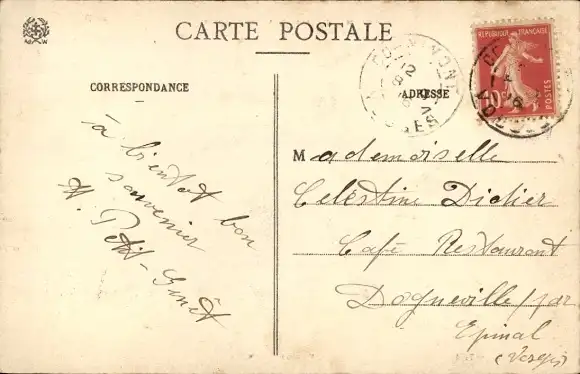 CARTE POSTALE
CORRESPONDANCE
ADRESSE
REPUBLIQUE FRANÇAISE
10
POSTES
VOSGES
à bientot bon
souvenir
Petit-
Mademoiselle
Celestine Didier
Café Restaurant
Dogneville / par
Epinal
(Vosges)